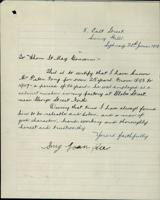 8. East Street
Surry Hills
Sydney 25th June 19
To Whom It May Concern
This is to certify that I have known
Mr Peter Tong for over 25 years. From 1893 to
1907, a period of 14 years he was employed as a
cabinet maker in my factory at Globe Street
near George Street North.
During that time I have always found
him to be reliable and sober, and a man of
good character, hard working and thoroughly
honest and trustworthy.
Yours faithfully